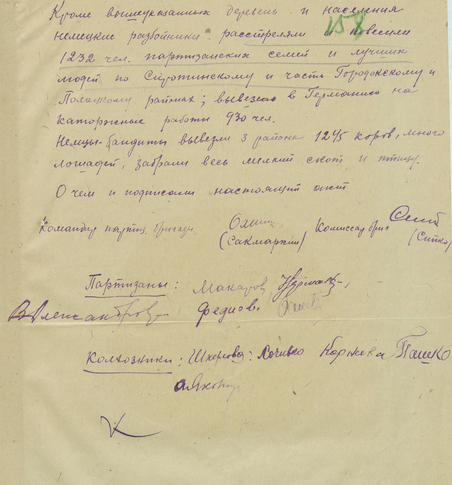 Кроме вышеуказанных деревень и населения
158
немецкие разбойники расстреляли и повесили
1232 чел. партизанских семей и лучших
людей по Сиротинскому и часть Городокскому и
Полоцкому району; вывезено в Германию на
каторжные работы 930 чел.
Немцы-бандиты вывезли з района 1245 коров, много
лошадей, забрали весь мелкий скот и птицу.
О чем и подписали настоящий акт
Командир партиз. бригады Комиссар бриг.
(Сакмаркин) (Ситко)
Партизаны: Макаров
ВАлександров Федиов
Колхозники: Шкерова: Корнева Пашко